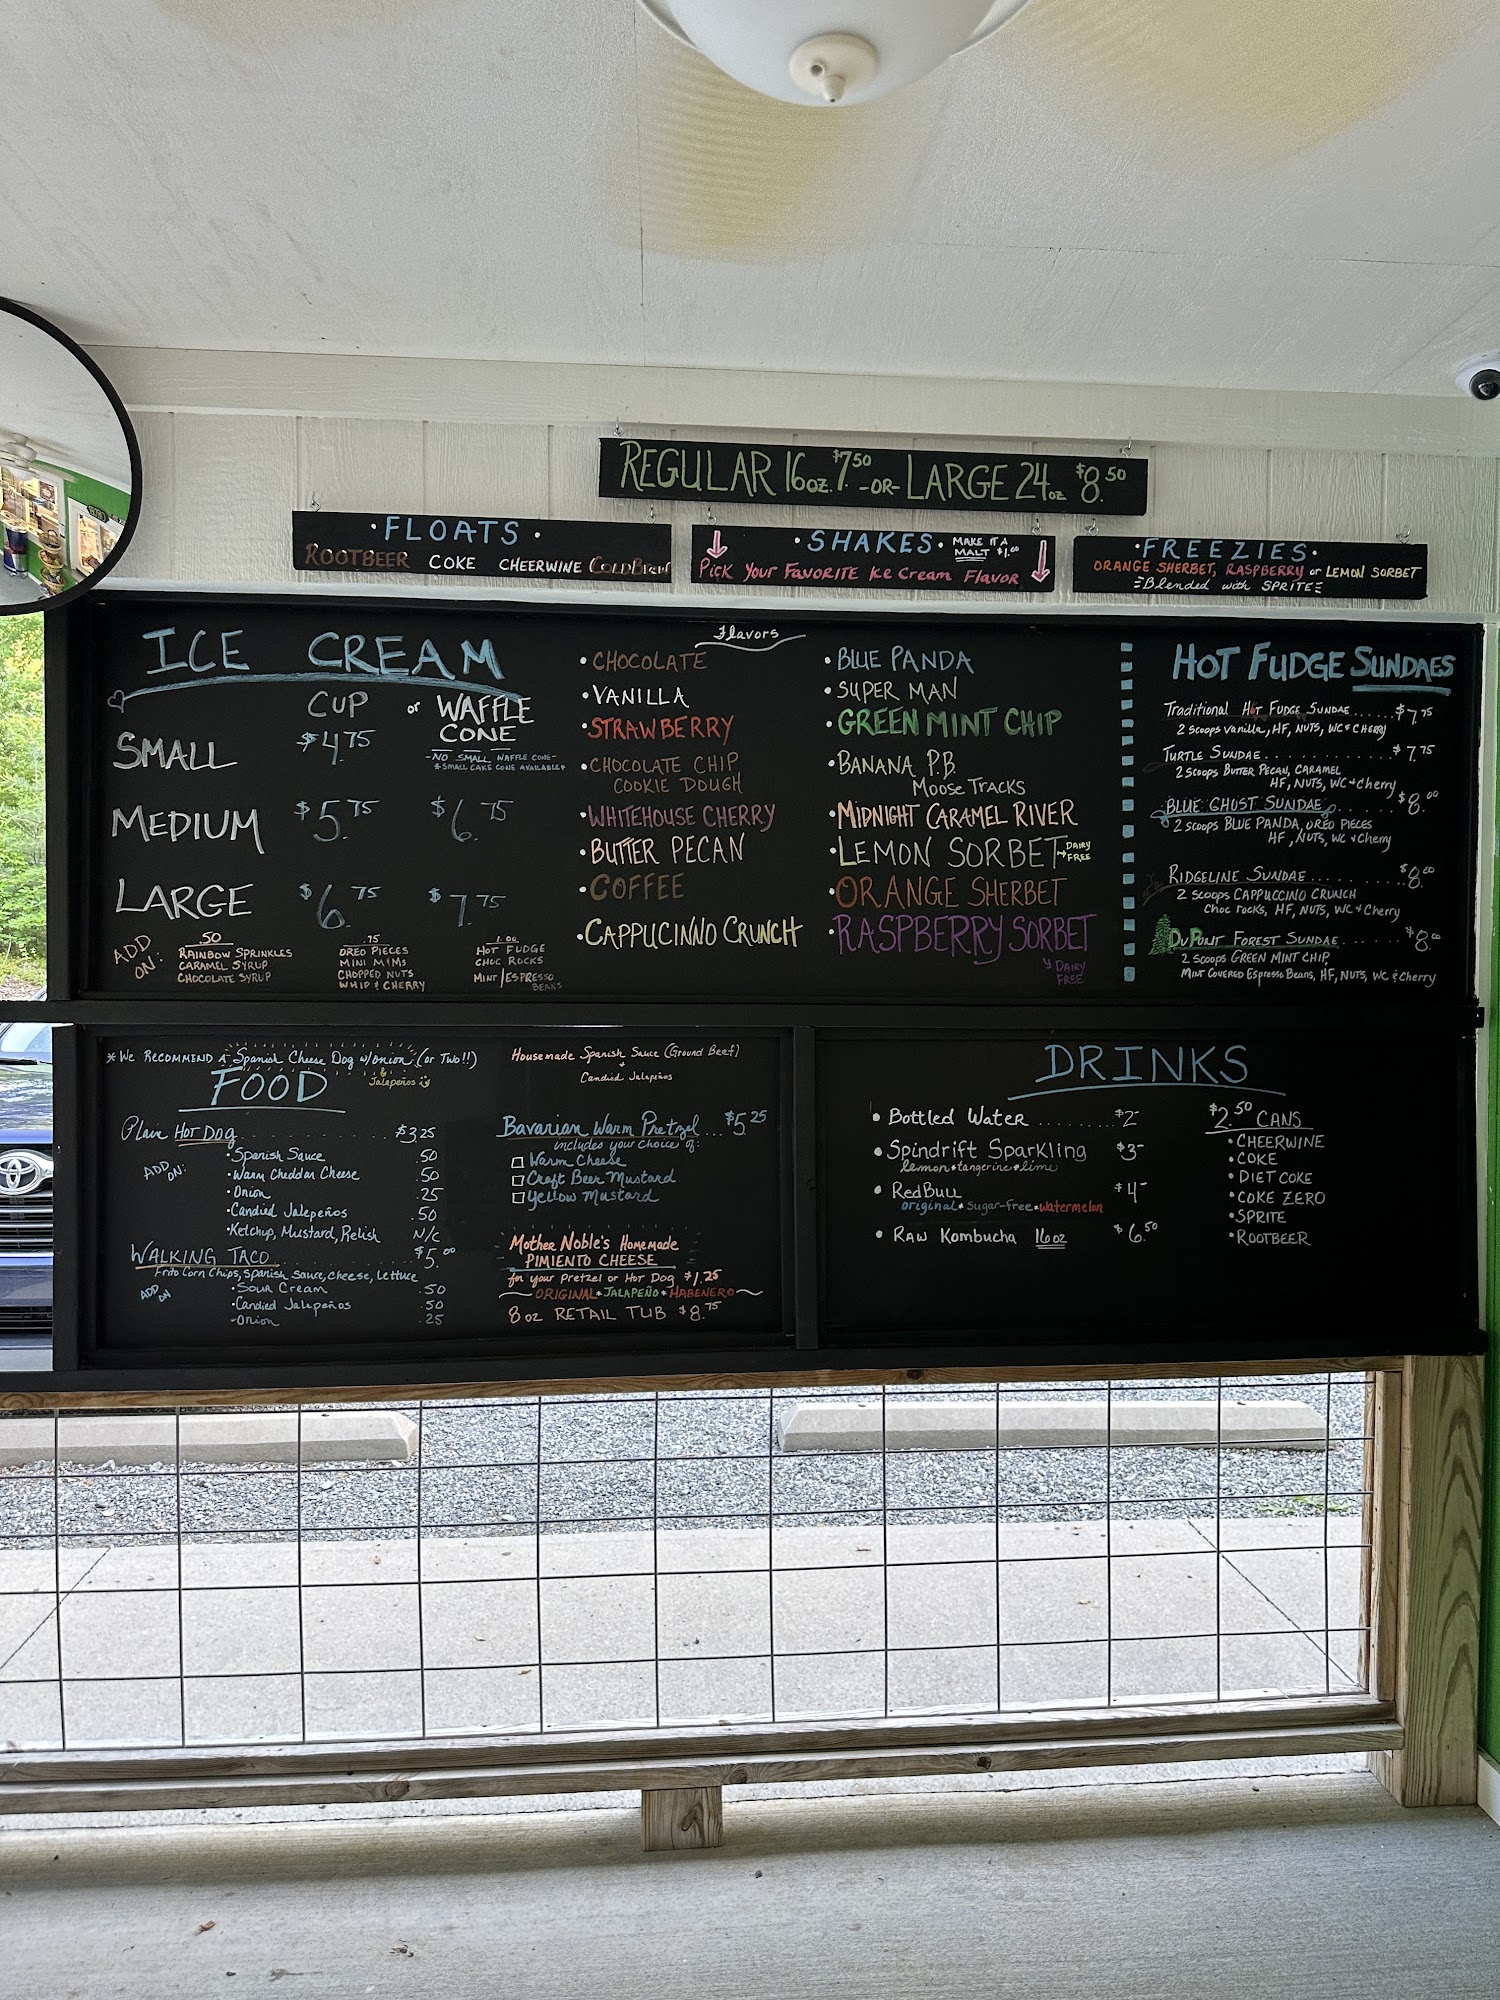 REGULAR 16oz. $7.50 -OR- LARGE 24oz $8.50
• FLOATS •
ROOTBEER COKE CHEERWINE COLDBREW
• SHAKES • MAKE IT A MALT $1.00
Pick Your FAVORITE Ice Cream Flavor
• FREEZIES •
ORANGE SHERBET, RASPBERRY or LEMON SORBET
Blended with SPRITE
ICE CREAM
CUP or WAFFLE CONE
SMALL $4.75
-NO SMALL WAFFLE CONE-
*SMALL CAKE CONE AVAILABLE*
MEDIUM $5.75 $6.75
LARGE $6.75 $7.75
ADD ON:
.50
RAINBOW SPRINKLES
CARAMEL SYRUP
CHOCOLATE SYRUP
.75
OREO PIECES
MINI M&MS
CHOPPED NUTS
WHIP & CHERRY
1.00
HOT FUDGE
CHOC ROCKS
MINT/ESPRESSO
BEANS
Flavors
• CHOCOLATE
• VANILLA
• STRAWBERRY
• CHOCOLATE CHIP
COOKIE DOUGH
• WHITEHOUSE CHERRY
• BUTTER PECAN
• COFFEE
• CAPPUCINNO CRUNCH
• BLUE PANDA
• SUPER MAN
• GREEN MINT CHIP
• BANANA P.B.
MOOSE TRACKS
• MIDNIGHT CARAMEL RIVER
• LEMON SORBET → DAIRY FREE
• ORANGE SHERBET
• RASPBERRY SORBET
DAIRY
FREE
HOT FUDGE SUNDAES
Traditional Hot FUDGE SUNDAE ...... $7.75
2 scoops vanilla, HF, NUTS, WC & CHERRY
TURTLE SUNDAE ........ $7.75
2 SCOOPS BUTTER PECAN, CARAMEL
HF, NUTS, WC & Cherry
BLUE GHOST SUNDAE ....... $8.00
2 scoops BLUE PANDA, OREO PIECES
HF, NUTS, WC & Cherry
RIDGELINE SUNDAE ........ $8.00
2 scoops CAPPUCCINO CRUNCH
Choc rocks, HF, NUTS, WC & Cherry
DuPONT FOREST SUNDAE ....... $8.00
2 SCOOPS GREEN MINT CHIP,
MINT COVERED Espresso Beans, HF, NUTS, WC & Cherry
* We RECOMMEND A Spanish Cheese Dog w/onion (or Two!!)
& Jalapeños
FOOD
Plain HOT DOG ............ $3.25
ADD ON:
• Spanish Sauce .50
• Warm Cheddar Cheese .50
• Onion .25
• Candied Jalapeños .50
• Ketchup, Mustard, Relish N/C
WALKING TACO ............ $5.00
Frito Corn Chips, Spanish Sauce, Cheese, Lettuce
ADD ON
• SOUR CREAM .50
• Candied Jalapeños .50
• Onion .25
Housemade Spanish Sauce (Ground Beef)
+
Candied Jalapeños
Bavarian Warm Pretzel ... $5.25
includes your choice of:
Warm Cheese
Craft Beer Mustard
Yellow Mustard
Mother Noble's Homemade
PIMIENTO CHEESE
for your Pretzel or Hot Dog $1.25
ORIGINAL • JALAPEÑO • HABENERO
8 oz RETAIL TUB $8.75
DRINKS
• Bottled Water ......... $2-
• Spindrift Sparkling $3-
lemon • tangerine • lime
• RedBull $4-
original • sugar-free • watermelon
• Raw Kombucha 16oz $6.50
$2.50 CANS
• CHEERWINE
• COKE
• DIET COKE
• COKE ZERO
• SPRITE
• ROOTBEER